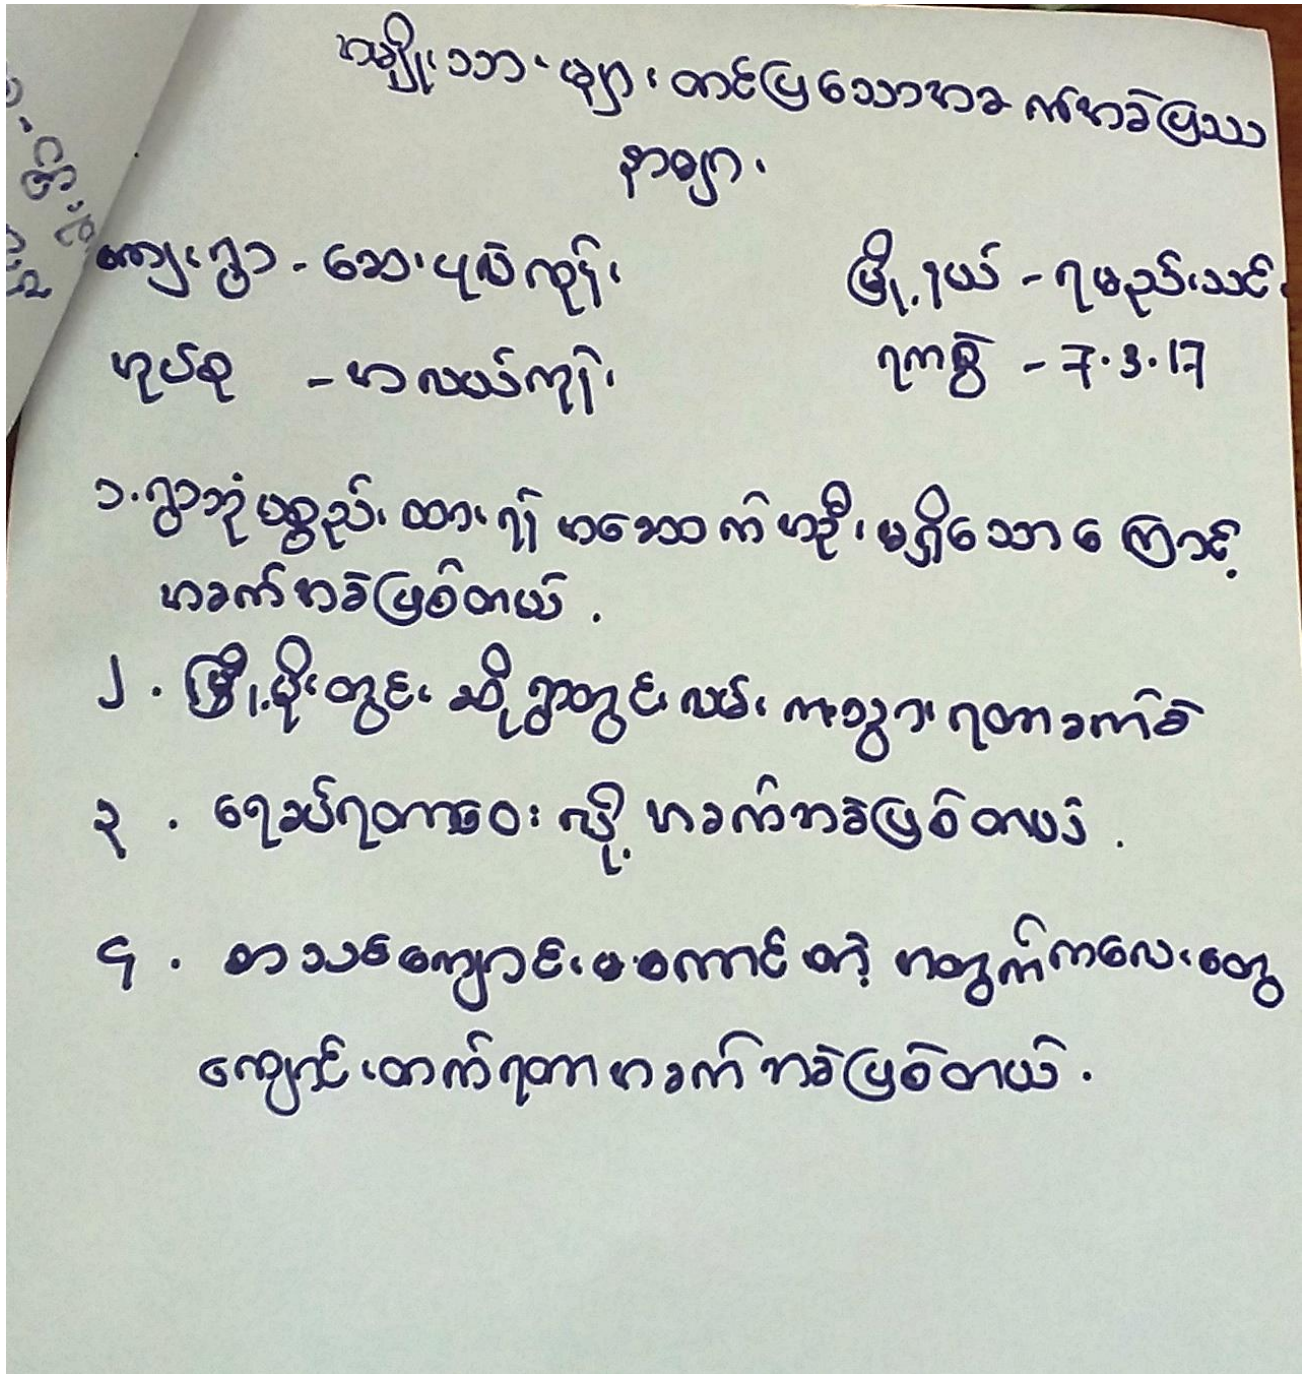 အမျိုးသားများတင်ပြသောအခက်အခဲပြဿ
နာများ
ကျေးရွာ - ဆေးပုလဲကုန်း မြို့နယ် - ရမည်းသင်း
အုပ်စု - အလယ်ကုန်း ရက်စွဲ - 7.3.17
၁. ရွာဘုံပစ္စည်းထားရန် အဆောက်အဦးမရှိသောကြောင့်
အခက်အခဲဖြစ်တယ်.
၂. မြို့မိုးတွင်းဆိုရွာတွင်းလမ်းကသွားရတာခက်ခဲ
၃. ရေခပ်ရတာဝေးလို့ အခက်အခဲဖြစ်တယ်.
၄. စာသင်ကျောင်းမကောင်းတဲ့ အတွက်ကလေးတွေ
ကျောင်းတက်ရတာအခက်အခဲဖြစ်တယ်.